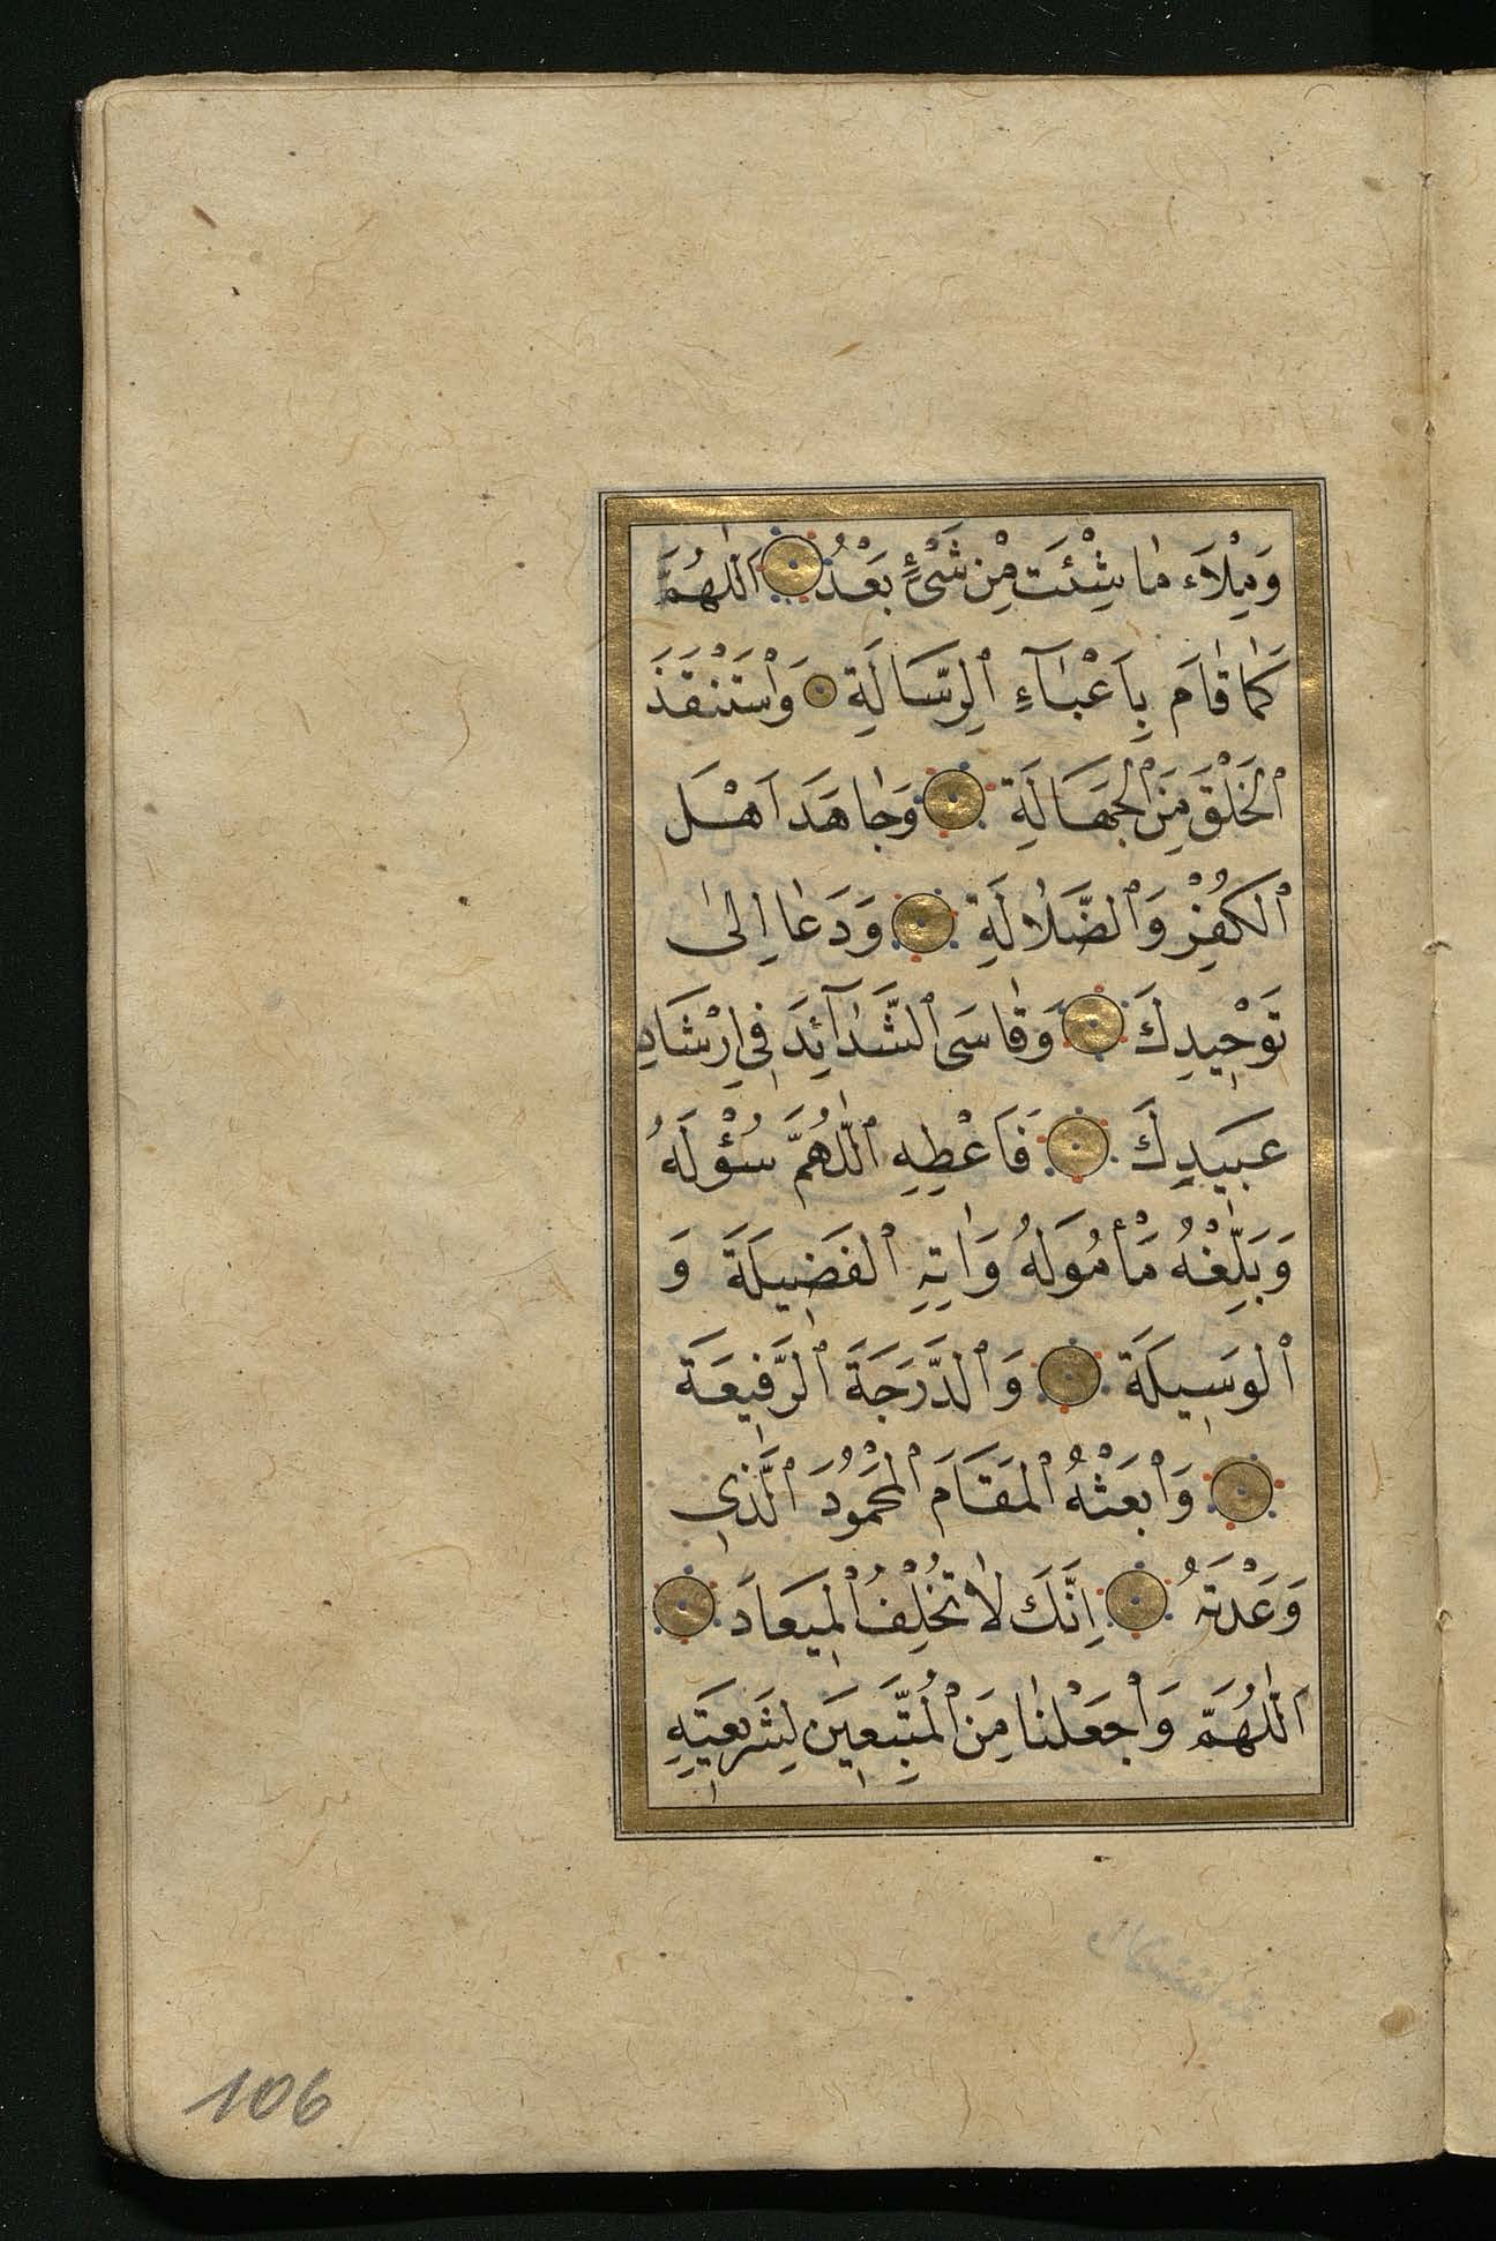 وَمِلْاَءَ مٰا شِئْتَ مِنْ شَىْءٍ بَعْدُ اَللّٰهُمَّ
كَمٰا قٰامَ بِاَعْبٰٓاءِ ٱلرِّسَالَةِ وَٱسْتَنْقَذَ
ٱلْخَلْقَ مِنَ ٱلْجَهَالَةِ وَجٰاهَدَ اَهْلَ
ٱلْكُفْرِ وَٱلضَّلٰالَةِ وَدَعٰا اِلىٰ
تَوْحِيدِكَ وَقٰاسَى ٱلشَّدٰٓائِدَ فِى اِرْشَادِ
عَبِيدِكَ فَاَعْطِهِ ٱللّٰهُمَّ سُؤْلَهُ
وَبَلِّغْهُ مَأْمُولَهُ وَاٰتِهِ ٱلْفَضِيلَةَ وَ
ٱلْوَسِيلَةَ وَٱلدَّرَجَةَ ٱلرَّفِيعَةَ
وَٱبْعَثْهُ ٱلْمَقَامَ ٱلْمَحْمُودَ ٱلَّذِى
وَعَدْتَهُ اِنَّكَ لٰا تُخْلِفُ ٱلْمِيعَادَ
اَللّٰهُمَّ وَٱجْعَلْنٰا مِنَ ٱلْمُتَّبِعِينَ لِشَرِيعَتِهِ
106